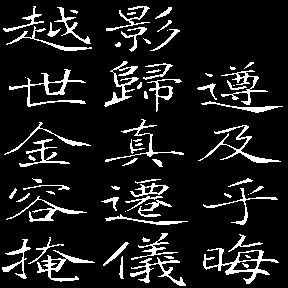 遵及乎晦
影歸真遷儀
越世金容掩